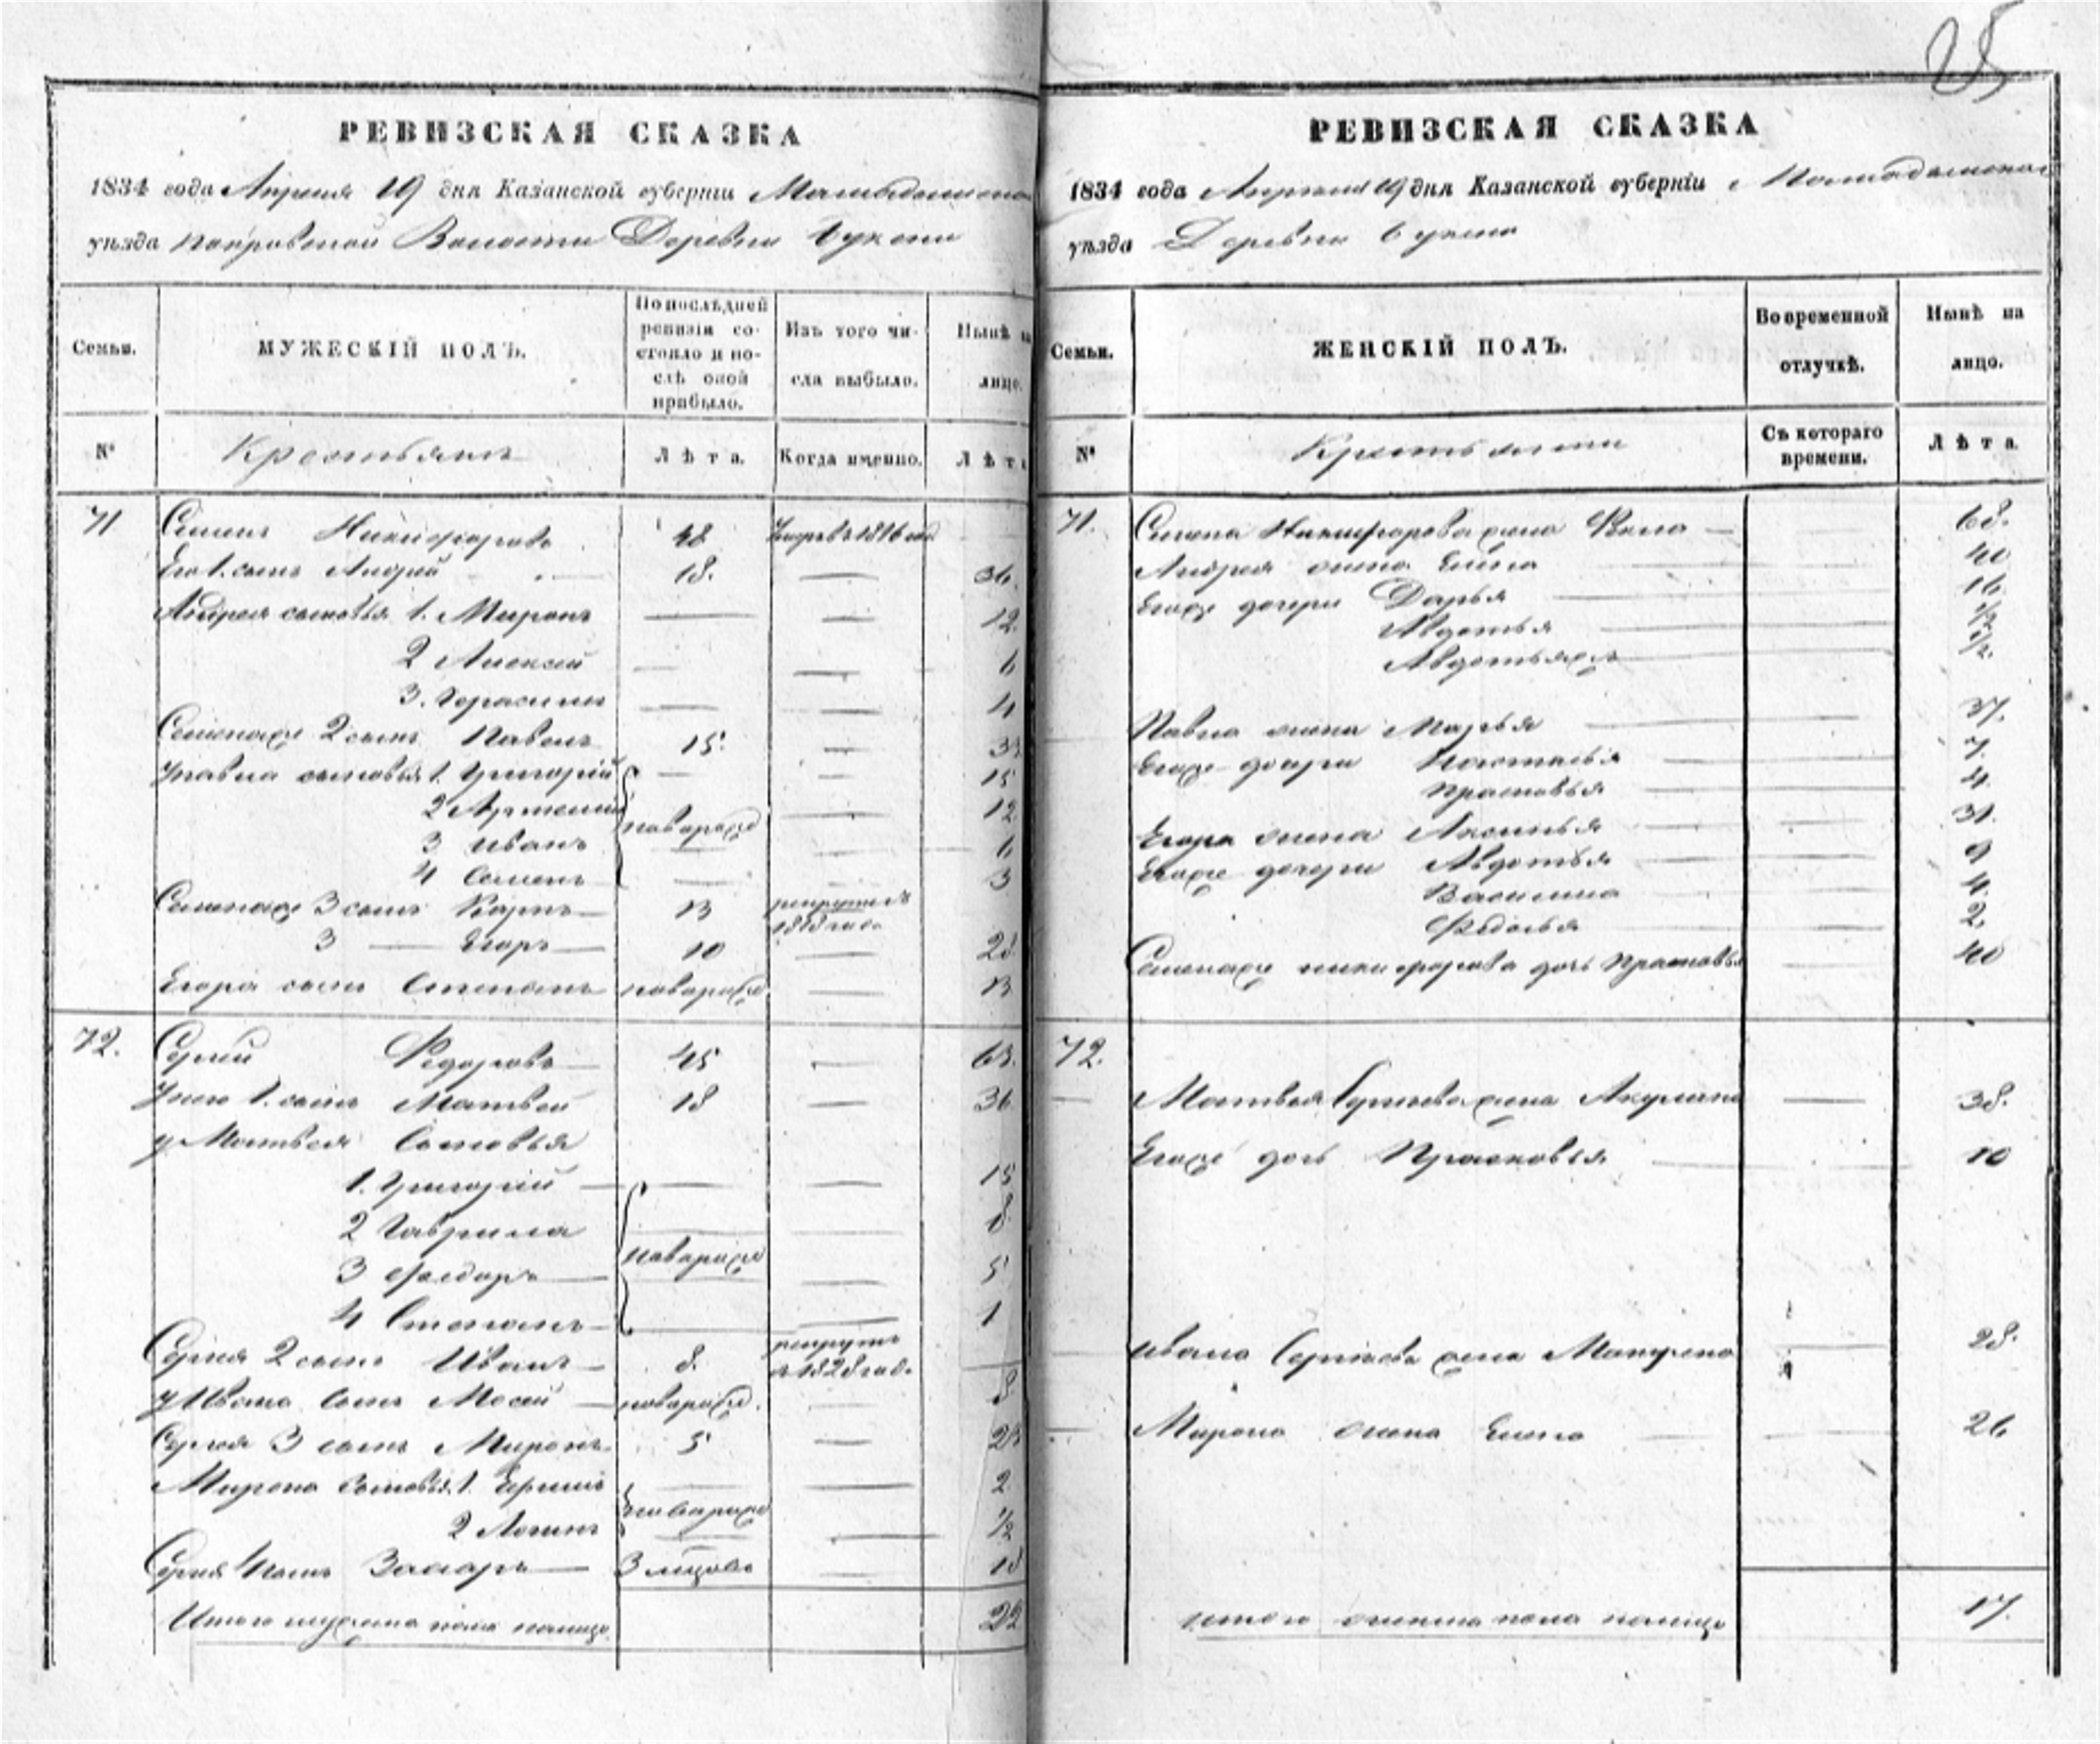 25
РЕВИЗСКАЯ СКАЗКА
1834 года Апреля 19 дня Казанской губерніи
уѣзда Покровской Волости Деревни Букени
Семьи.
МУЖЕСКІЙ ПОЛЪ.
По послѣдней ревизіи состояло и послѣ оной прибыло.
Изъ того числа выбыло.
Нынѣ на лицо.
№
Крестьянъ
Лѣта.
Когда именно.
Лѣта
71
Семенъ Никифоровъ 48 1816
Его 1. сынъ Андрей 18. — 36.
Андрея сыновья 1. Миронъ — — 12
2 Алексей — — 6
3. Герасимъ — — 4
Семена же 2 сынъ Павелъ 15. — 33
У Павла сыновья 1. Григорій — — 15
2 Артемій — 12
3 Иванъ — — 6
4 Семенъ — — 3
Семена же 3 сынъ Карпъ — 13
3 — Егоръ — 10 — 28
Егора сынъ Степанъ — 13
72.
Сергей Федоровъ — 45 — 63.
У него 1. сынъ Матвей 18 — 36
у Матвея Сыновья
1. Григорій — — — 15
2 Гаврила — — 8
3 Федоръ — — 5
4 Степанъ — — 1
Сергея 2 сынъ Иванъ — 8. рекрутъ 1828
У Ивана Сынъ Мосей — 8
Сергея 3 сынъ Миронъ. 5 — 23
Мирона Сыновья 1. Ермилъ — — 2
2 Логинъ — — 1/2
Сергея 4 сынъ Захаръ — — 18
Итого мужеска пола налицо 22
РЕВИЗСКАЯ СКАЗКА
1834 года Апреля 19 дня Казанской губерніи
уѣзда Деревни Букени
Семьи.
ЖЕНСКІЙ ПОЛЪ.
Во временной отлучкѣ.
Нынѣ на лицо.
№
Съ котораго времени.
Лѣта
71.
Семена Никифорова жена Фекла — 68.
Андрея жена Елена — 40
Его же дочери Дарья — — 16.
Авдотья — — 1/2
Авдотья же — 1/2.
Павла жена Марья — — 37.
Его же дочери Настасья — — 7.
Прасковья — — 4
Егора жена Аксинья — — 31.
Его же дочери Авдотья — — 9
Василиса — — 4.
Федосья — — 2.
Семена же Никифорова дочь Прасковья — 40
72.
Матвея Сергеева жена Акулина — 38.
Его же дочь Прасковья — 10
Ивана Сергеева жена Матрена — 28.
Мирона жена Елена — — 26
итого женска пола налицо 17.